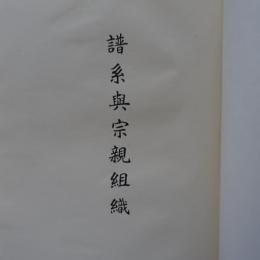 譜系與宗親組織